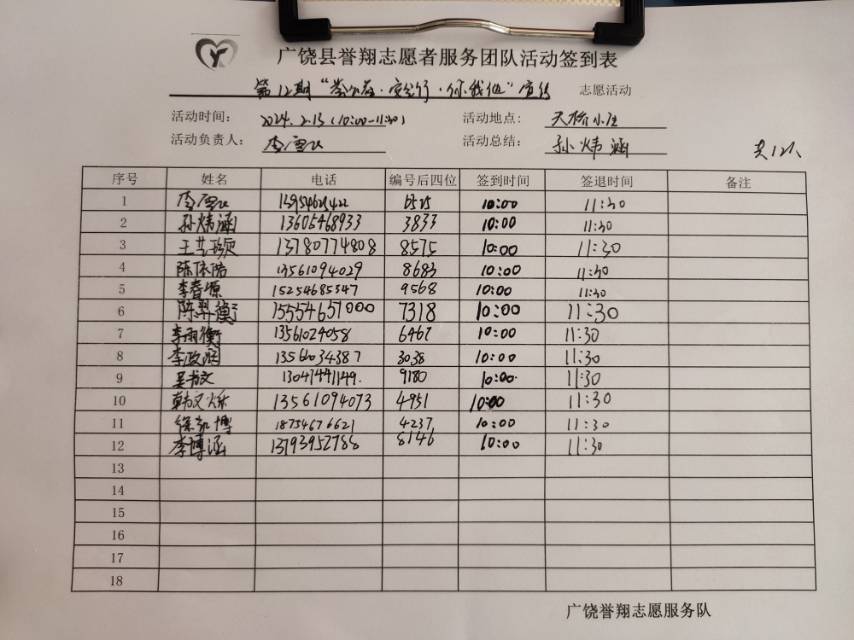 广饶县誉翔志愿者服务团队活动签到表
第12期 志愿活动
活动时间: 2024.2.13(10:00-11:30) 活动地点: 天桥小区
活动负责人: 李雪 活动总结: 孙炜涵 共12人
序号 姓名 电话 编号后四位 签到时间 签退时间 备注
1 李雪 10:00 11:30
2 孙炜涵 13605468933 3833 10:00 11:30
3 王艺 13780774808 8575 10:00 11:30
4 13561094029 8683 10:00 11:30
5 李春源 15254685347 9568 10:00 11:30
6 陈羿衡 15554651000 7318 10:00 11:30
7 李雨衡 13561024058 6467 10:00 11:30
8 李政润 13566034387 3038 10:00 11:30
9 吴书文 13047441149 9180 10:00 11:30
10 韩又烁 13561094073 4951 10:00 11:30
11 徐 博 18754676621 4237 10:00 11:30
12 李博涵 13793952788 8146 10:00 11:30
13
14
15
16
17
18
广饶誉翔志愿服务队